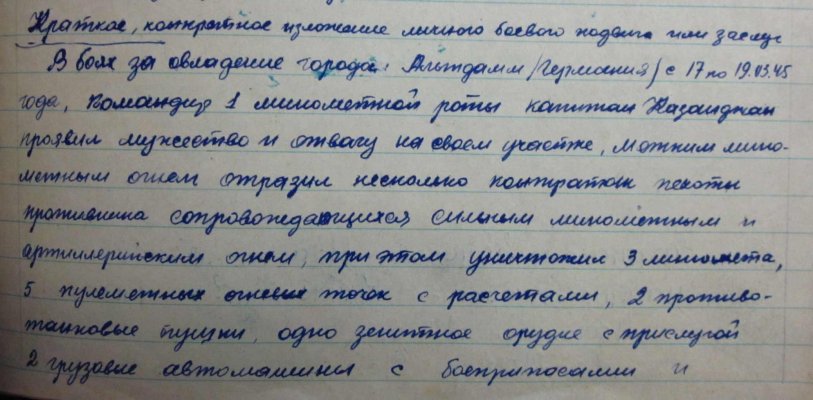 Краткое, конкретное изложение личного боевого подвига или заслуг
В боях за овладение города Альтдамм /Германия/ с 17 по 19.03.45
года, командир 1 минометной роты капитан Казанджан
проявил мужество и отвагу на своем участке, мощным мино-
метным огнем отразил несколько контратак пехоты
противника сопровождающихся сильным минометным и
артиллерийским огнем, при этом уничтожил 3 миномета,
5 пулеметных огневых точек с расчетами, 2 противо-
танковые пушки, одно зенитное орудие с прислугой
2 грузовые автомашины с боеприпасами и